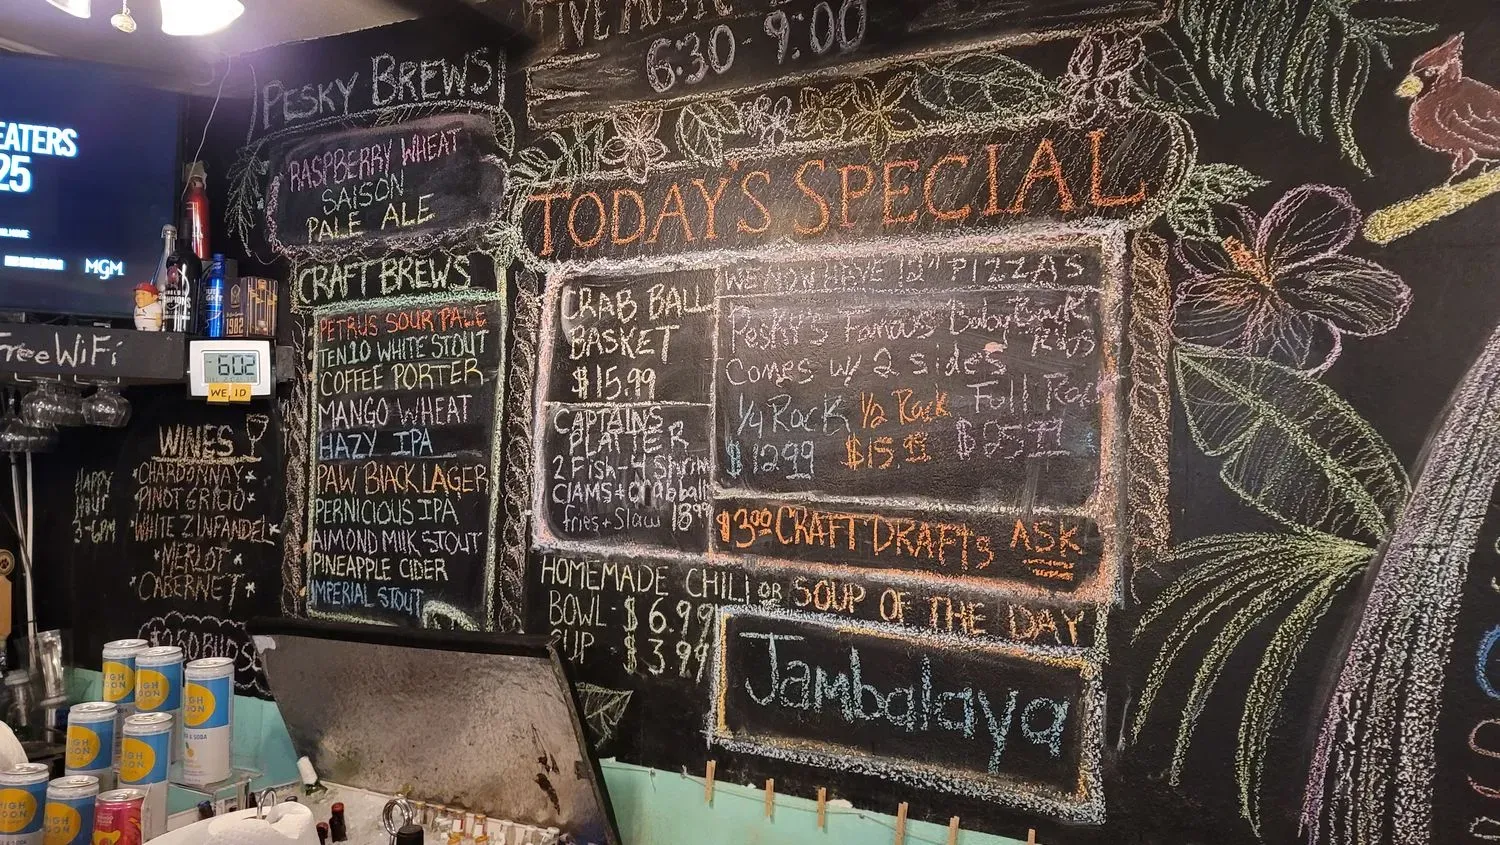 LIVE MUSIC
6:30-9:00
PESKY BREWS
RASPBERRY WHEAT
SAISON
PALE ALE
CRAFT BREWS
PETRUS SOUR PALE
TEN10 WHITE STOUT
COFFEE PORTER
MANGO WHEAT
HAZY IPA
PAW BLACK LAGER
PERNICIOUS IPA
ALMOND MILK STOUT
PINEAPPLE CIDER
IMPERIAL STOUT
TODAY'S SPECIAL
CRAB BALL
BASKET
$15.99
CAPTAINS
PLATTER
2 Fish-4 Shrim
CLAMS+crabball
fries+Slaw 18.99
PIZZAS
Pesky's Famous Baby Back
Ribs
Comes w/ 2 sides
1/4 Rack 1/2 Rack Full Rack
$12.99
$3.00 CRAFT DRAFTS ASK
HOMEMADE CHILI OR SOUP OF THE DAY
BOWL-$6.99
CUP $3.99
Jambalaya
EATERS
25
MGM
Free WiFi
6:02
WE ID
WINES
*CHARDONNAY*
*PINOT GRIGIO*
*WHITE ZINFANDEL*
*MERLOT*
*CABERNET*
HAPPY
HOUR
3-6PM
1982
HIGH
NOON
& SODA